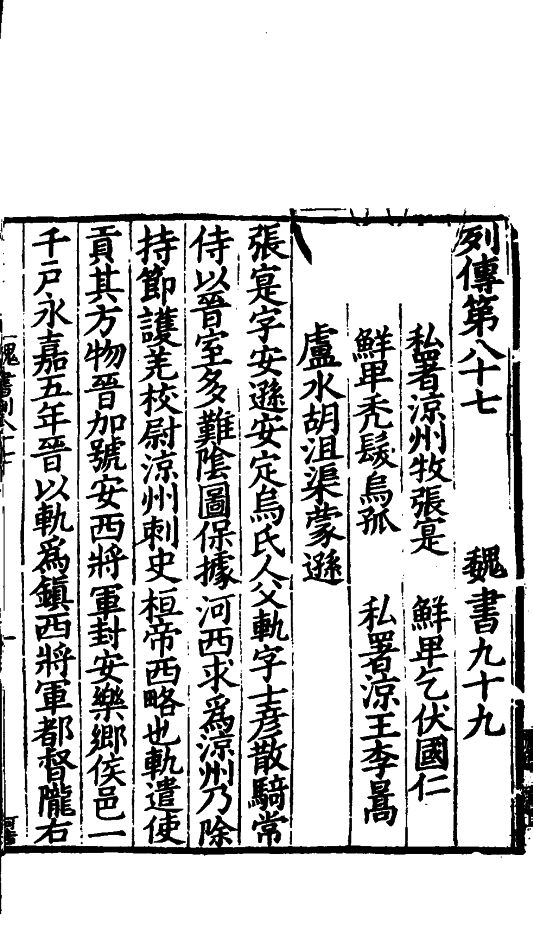 列傳第八十七 魏書九十九
私署涼州牧張寔 鮮卑乞伏國仁
鮮卑禿髮烏孤 私署涼王李暠
盧水胡沮渠蒙遜
張寔字安遜安定烏氏人父軌字士彦散騎常
侍以晉室多難陰圖保據河西求爲涼州乃除
持節護羌校尉涼州刺史桓帝西略也軌遣使
貢其方物晉加號安西將軍封安樂鄉侯邑一
千戸永嘉五年晉以軌爲鎮西將軍都督隴右